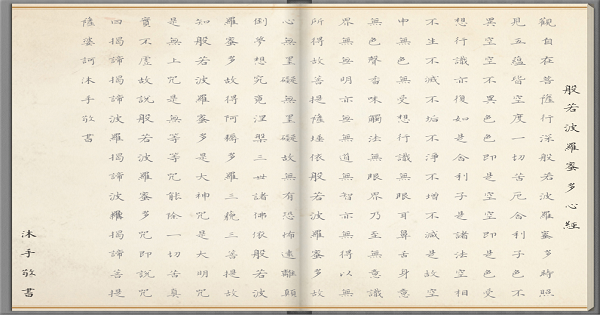 般若波羅蜜多心經
觀自在菩薩行深般若波羅蜜多時照
見五蘊皆空度一切苦厄舍利子色不
異空空不異色色即是空空即是色受
想行識亦復如是舍利子是諸法空相
不生不滅不垢不淨不增不減是故空
中無色無受想行識無眼耳鼻舌身意
無色聲香味觸法無眼界乃至無意識
界無明亦無無道無智亦無得以無
所得故菩提薩埵依般若波羅蜜多故
心無罣礙無罣礙故無有恐怖遠離顛
倒夢想究竟涅槃三世諸佛依般若波
羅蜜多故得阿耨多羅三藐三菩提故
知般若波羅蜜多是大神咒是大明咒
是無上咒是無等等咒能除一切苦真
實不虛故說般若波羅蜜多咒即說咒
曰揭諦揭諦波羅揭諦波羅僧揭諦菩提
薩婆訶沐手敬書
沐手敬書